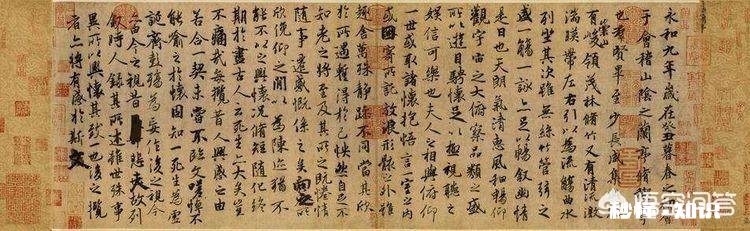 永和九年歲在癸丑暮春之初會
于會稽山陰之蘭亭脩禊事
也羣賢畢至少長咸集此地
有崇山峻領茂林脩竹又有清流激
湍暎帶左右引以為流觴曲水
列坐其次雖無絲竹管弦之
盛一觴一詠亦足以暢敘幽情
是日也天朗氣清惠風和暢仰
觀宇宙之大俯察品類之盛
所以遊目騁懷足以極視聽之
娛信可樂也夫人之相與俯仰
一世或取諸懷抱悟言一室之內
或因寄所託放浪形骸之外雖
趣舍萬殊靜躁不同當其欣
於所遇暫得於己怏然自足不
知老之將至及其所之既惓情
隨事遷感慨係之矣向之所
欣俛仰之閒以為陳迹猶不
能不以之興懷況脩短隨化終
期於盡古人云死生亦大矣豈
不痛哉每攬昔人興感之由
若合一契未嘗不臨文嗟悼不
能喻之於懷固知一死生為虛
誕齊彭殤為妄作後之視今
亦由今之視昔悲夫故列
敘時人錄其所述雖世殊事
異所以興懷其致一也後之攬
者亦將有感於斯文
悟空问答
秒懂-知识